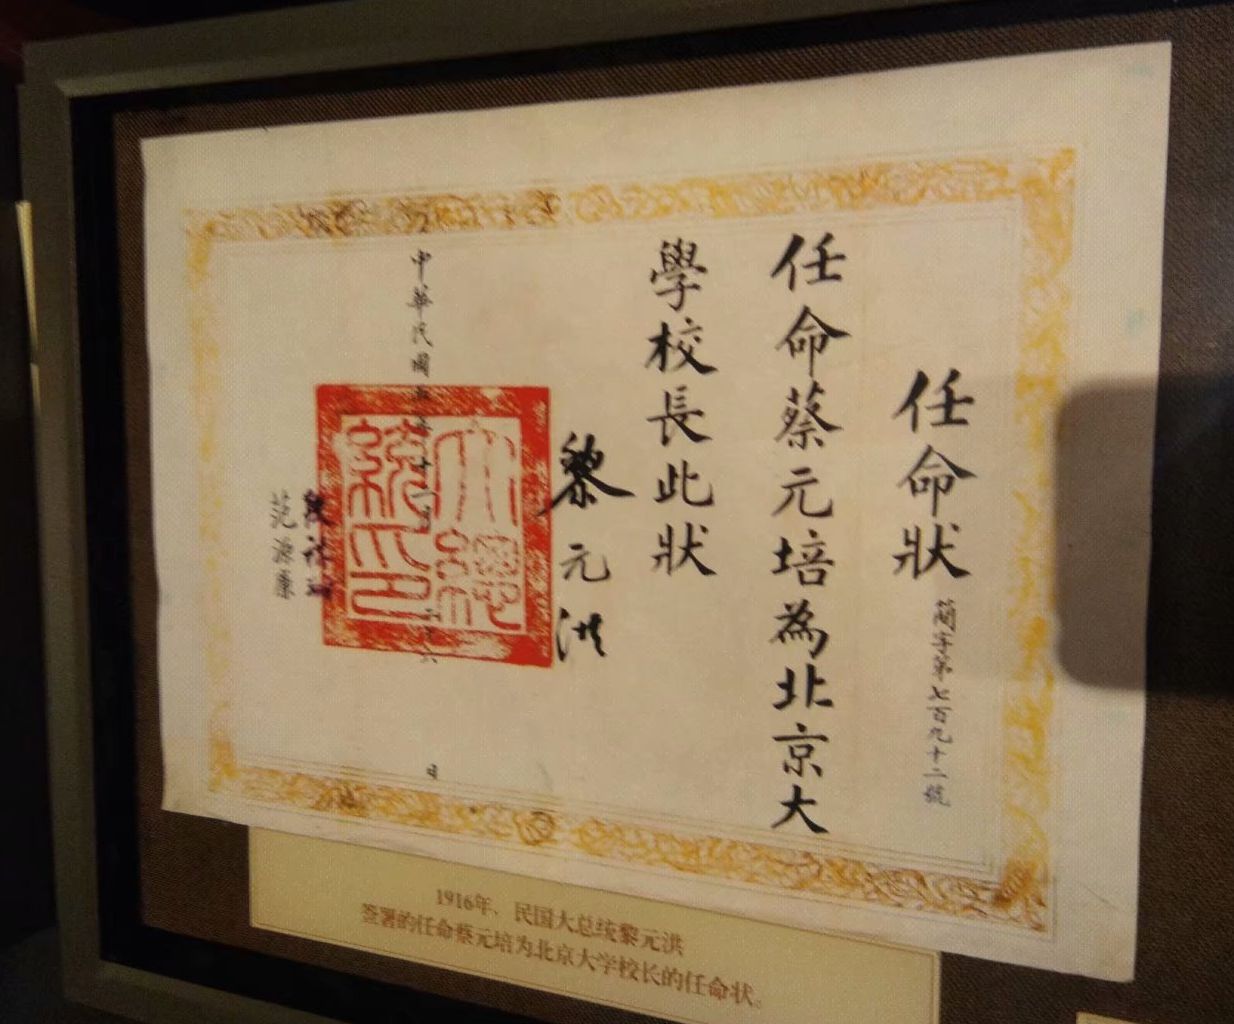 任命狀
簡字第七百九十二號
任命蔡元培為北京大
學校長此狀
黎元洪
大總
統印
中華民國五年十二月二十六
日
段祺瑞
范源廉
1916年，民国大总统黎元洪
签署的任命蔡元培为北京大学校长的任命状。